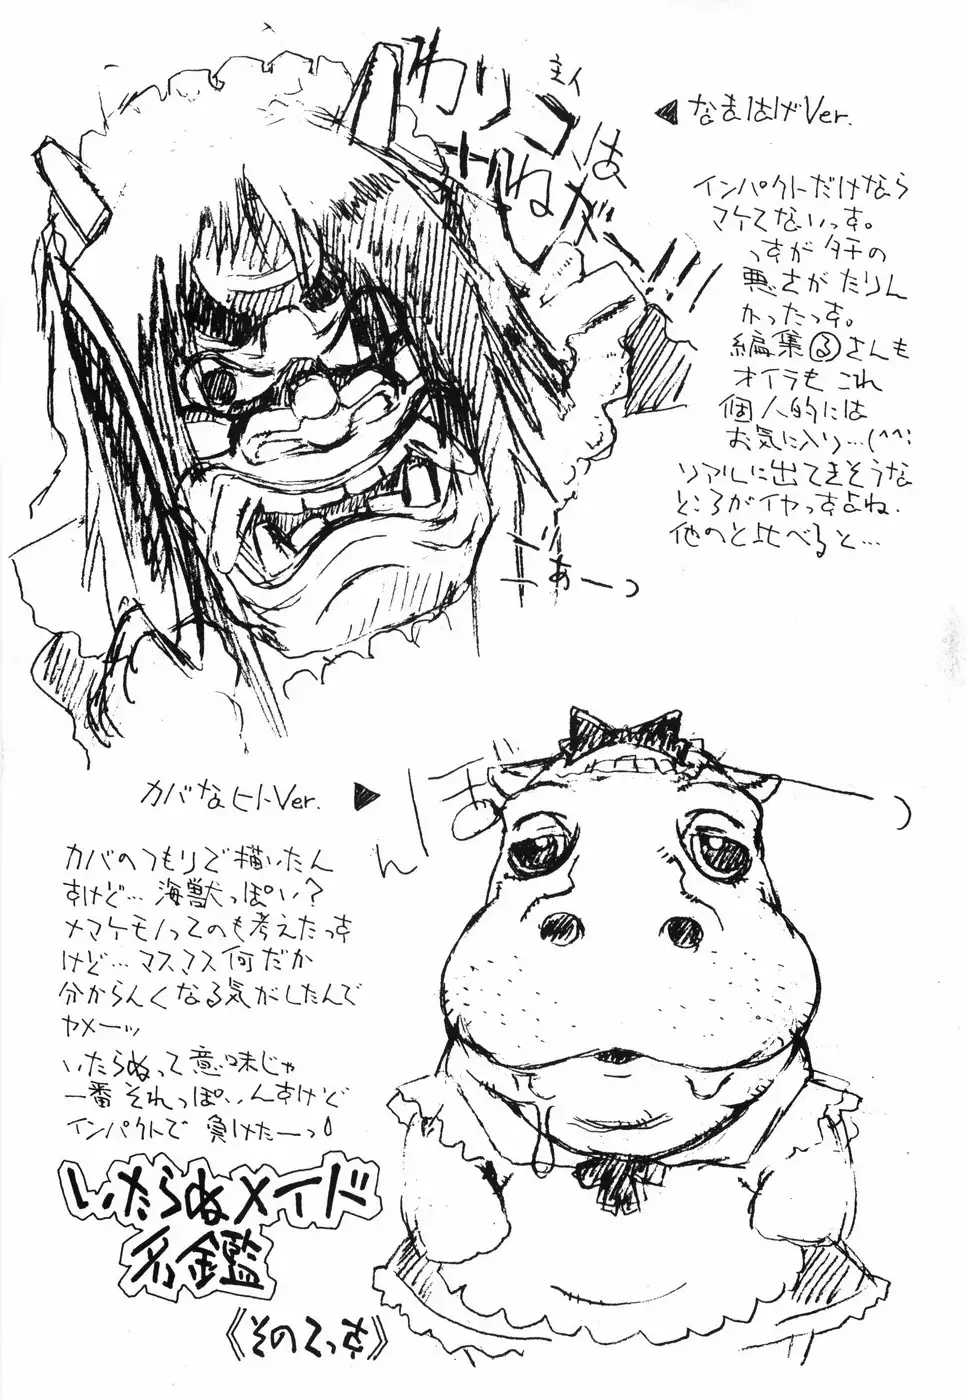 わりコは
いねが〜!!
◀なまはげVer.
インパクトだけなら
マケてないっす。
っすがタチの
悪さがたりん
かったっす。
編集るさんも
オイラもこれ
個人的には
お気に入り…(^^;
リアルに出てきそうな
ところがイヤっすよね.
他のと比べると…
カバなヒトVer. ▶
カバのつもりで描いたん
すけど…海獣っぽい?
ナマケモノってのも考えたっす
けど…マスマス何だか
分からんくなる気がしたんで
ヤメーッ
いたらぬって意味じゃ
一番それっぽいんすけど
インパクトで負けたーっ
いたらぬメイド
名鑑
《その2っす》